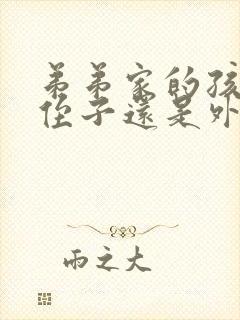 弟弟家的孩
侄子還是外
雨之大